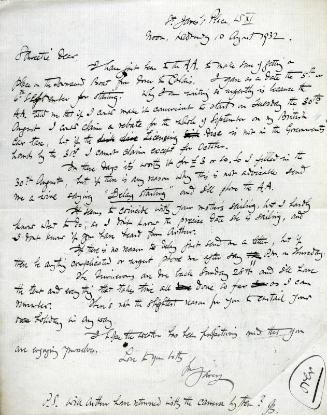 St. James's Place, SW1
Noon, Wednesday 10 August 1932.
Sweetie Dear
I have just been to the A.A. to make sure of getting a
place on the Townsend Boat from Dover to Calais. I gave as a date the 5th or
6 September for starting. Why I am writing so urgently is because the
A.A. told me that if I can make it convenient to start on Tuesday the 30th
August I could claim a rebate for the whole of September on my British
Car there, but if the licensing disc is not in the Government
hands by the 31st I cannot claim except for October.
In these days its worth it for £3 or so, so I filled in the
30th August, but if there is any reason why this is not advisable send
me a wire saying "Delay starting" and I'll phone the A.A.
It may to coincide with your mothers sailing, but I hardly
know what to do, as I don't know the precise date she is sailing, and
I don't know if you have heard from Arthur.
If there is no reason to delay just send me a letter, but if
there be anything complicated or urgent phone me after say on Thursday.
The running are on each Sunday 28th and I'll have
the tour and everything that takes time all done so far as I can
remember. There's not the slightest reason for you to curtail your
holiday in any way.
I hope the weather has been propitious and that you
are enjoying yourselves.
Love to you both
P.S. Will Arthur have returned with the camera by then?
Over